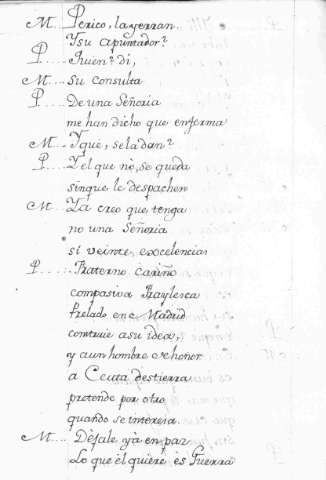 M.... Perico, la yerran.
Y su apuntador?
P.... Quien? di,
M.... Su consulta
P.... De una Señoria
me han dicho que enferma
M.... Y què, se la dan?
P.... Y el que no, se queda
sinque le despachen
M.... Ya creo que tenga
no una Señoria
si veinte excelencias
P.... Fraterno cariño
compasiva Fraylesca
Prelado en e Madrid
construie a su idea,
y a un hombre e honor
a Ceuta destierra
pretende por otro
quando se interesa.
M.... Dèjale yà en paz
Lo que èl quiere ès Guerra